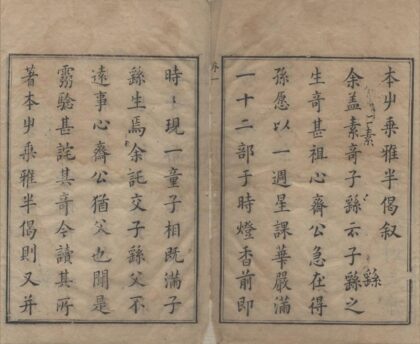 本屮乘雅半偈叙
余蓋素奇子繇云子繇之
生奇甚祖心齋公急在得
孫愿以一週星課華嚴滿
一十二部于時燈香前即
時〻現一童子相既滿子
繇生焉余託交子繇父不
遠事心齋公猶父也聞是
靈驗甚詫其奇今讀其所
著本屮乘雅半偈則又并